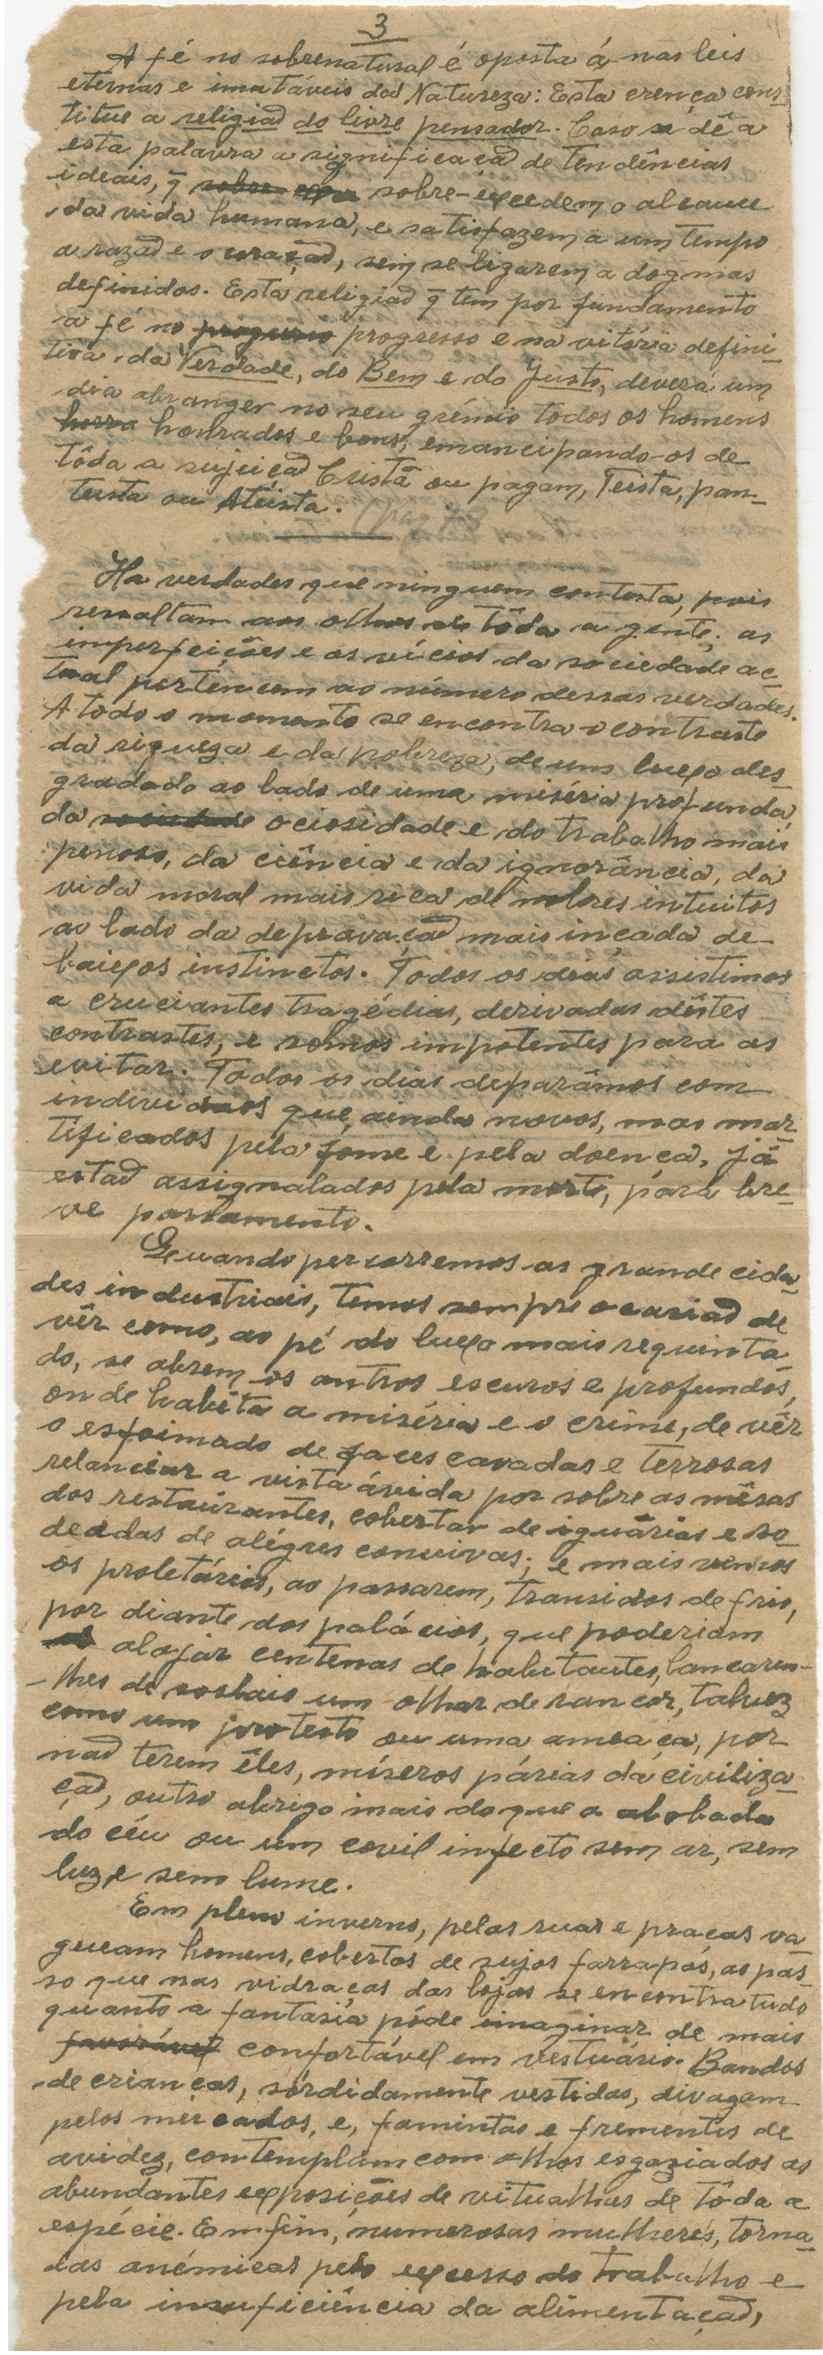 3
A fé no sobrenatural é oposta á nas leis
eternas e imutáveis da Natureza: Esta crença cons-
titue a religiaõ do livre pensador. Caso se dê a
esta palavra a significaçaõ de tendências
ideais, q̃ sobre-excedem o alcance
da vida humana, e satisfazem a um tempo
a razaõ e o coraçaõ, sem se ligarem a dogmas
definidos. Esta religiaõ q̃ tem por fundamento
a fé no progresso e na vitória defini-
tiva da Verdade, do Bem e do Justo, deverá um
dia abranger no seu grémio todos os homens
honrados e bons, emancipando-os de
tôda a sujeiçaõ Cristã ou pagam, Teista, pan-
teista ou Ateista.
Ha verdades que ninguem contesta, pois
resaltam aos olhos de tôda a gente; as
imperfeições e os vícios da sociedade ac-
tual pertencem ao número dessas verdades.
A todo o momento se encontra o contraste
da riqueza e da pobreza, de um luxo des-
gradado ao lado de uma miséria profunda,
da sociedade ociosidade e do trabalho mais
penoso, da ciência e da ignorância, da
vida moral mais rica de nobres intuitos
ao lado da depravaçaõ mais inçada de
baixos instinctos. Todos os dias assistimos
a cruciantes tragédias, derivadas dêstes
contrastes, e somos impotentes para as
evitar. Todos os dias deparâmos com
individuos que, ainda novos, mas mar-
tificados pela fome e pela doença, já
estaõ assignalados pela morte, para bre-
ve passamento.
Quando percorremos as grande cida-
des industriais, temos sempre ocasiaõ de
vêr como, ao pé do luxo mais requinta-
do, se abrem os antros escuros e profundos,
onde habita a miséria e o crime, de vêr
o esfoimado de faces cavadas e terrosas
relancear a vista ávida por sobre as mêsas
dos restaurantes, cobertas de iguárias e ro-
deadas de alégres convivas; e mais vemos
os proletários, ao passarem, transidos de frio,
por diante dos palácios, que poderiam
alojar centenas de habitantes, lançarem-
-lhes de soslaio um olhar de rancor, talvez
como um protesto ou uma ameaça, por
naõ terem êles, míseros párias da civiliza-
çaõ, outro abrigo mais do que a abobada
do céu ou um covil infecto sem ar, sem
luz, e sem lume.
Em pleno inverno, pelas ruas e praças va-
gueam homens, cobertos de sujos farrapos, ao pas-
so que nas vidraças das lojas se encontra tudo
quanto a fantasia póde imaginar de mais
favorável confortável em vestuário. Bandos
de crianças, sórdidamente vestidas, divagam
pelos mercados, e, famintas e frementes de
avidez, contemplam com olhos esgaziados as
abundantes exposições de vitualhas de tôda a
espécie. Emfim, numerosas mulheres, torna-
das anémicas pelo excesso do trabalho e
pela insuficiência da alimentaçaõ,